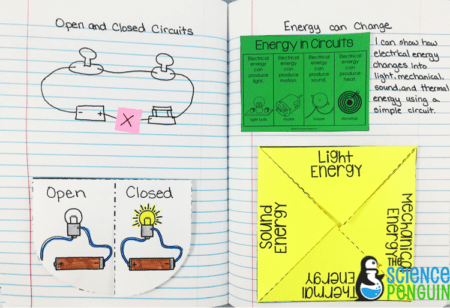 Open and Closed Circuits
X
Open
Closed
Energy can Change
Energy in Circuits
Electrical
energy
can
produce
light.
Electrical
energy
can
produce
motion.
Electrical
energy
can
produce
sound.
Electrical
energy
can
produce
heat.
light bulb
I can show how
electrical energy
changes into
light, mechanical,
sound, and thermal
energy using a
simple circuit.
Light
Energy
Sound
Energy
Mechanical
Energy
Thermal
Energy
THE
SCIENCE
PENGUIN